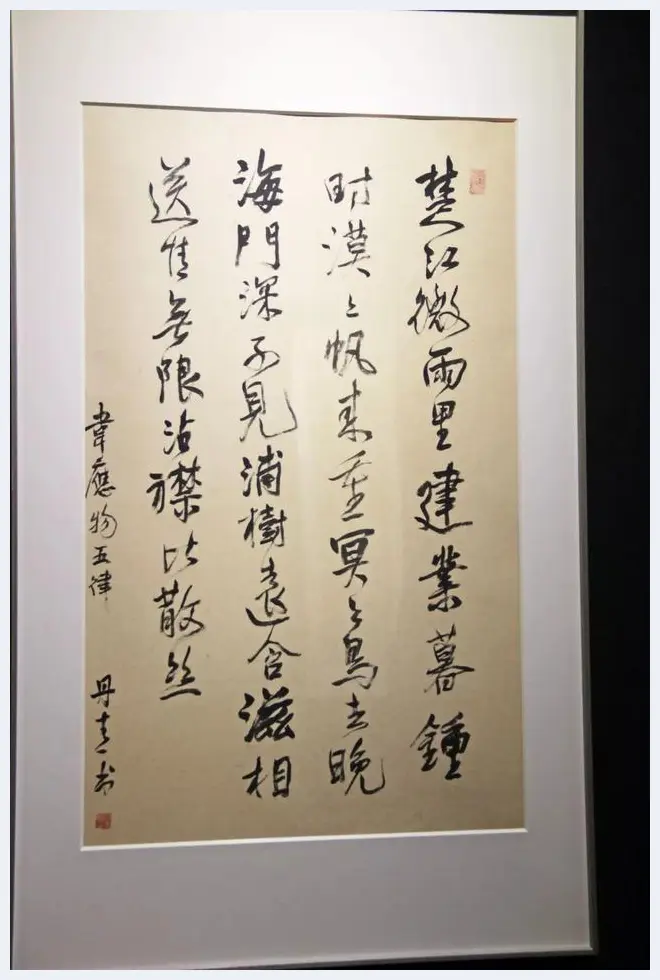 楚江微雨里建業暮鍾
時漠々帆来重冥々鳥去晚
海門深不見浦樹遠含滋相
送情無限沾襟比散丝
韋應物五律
丹青书